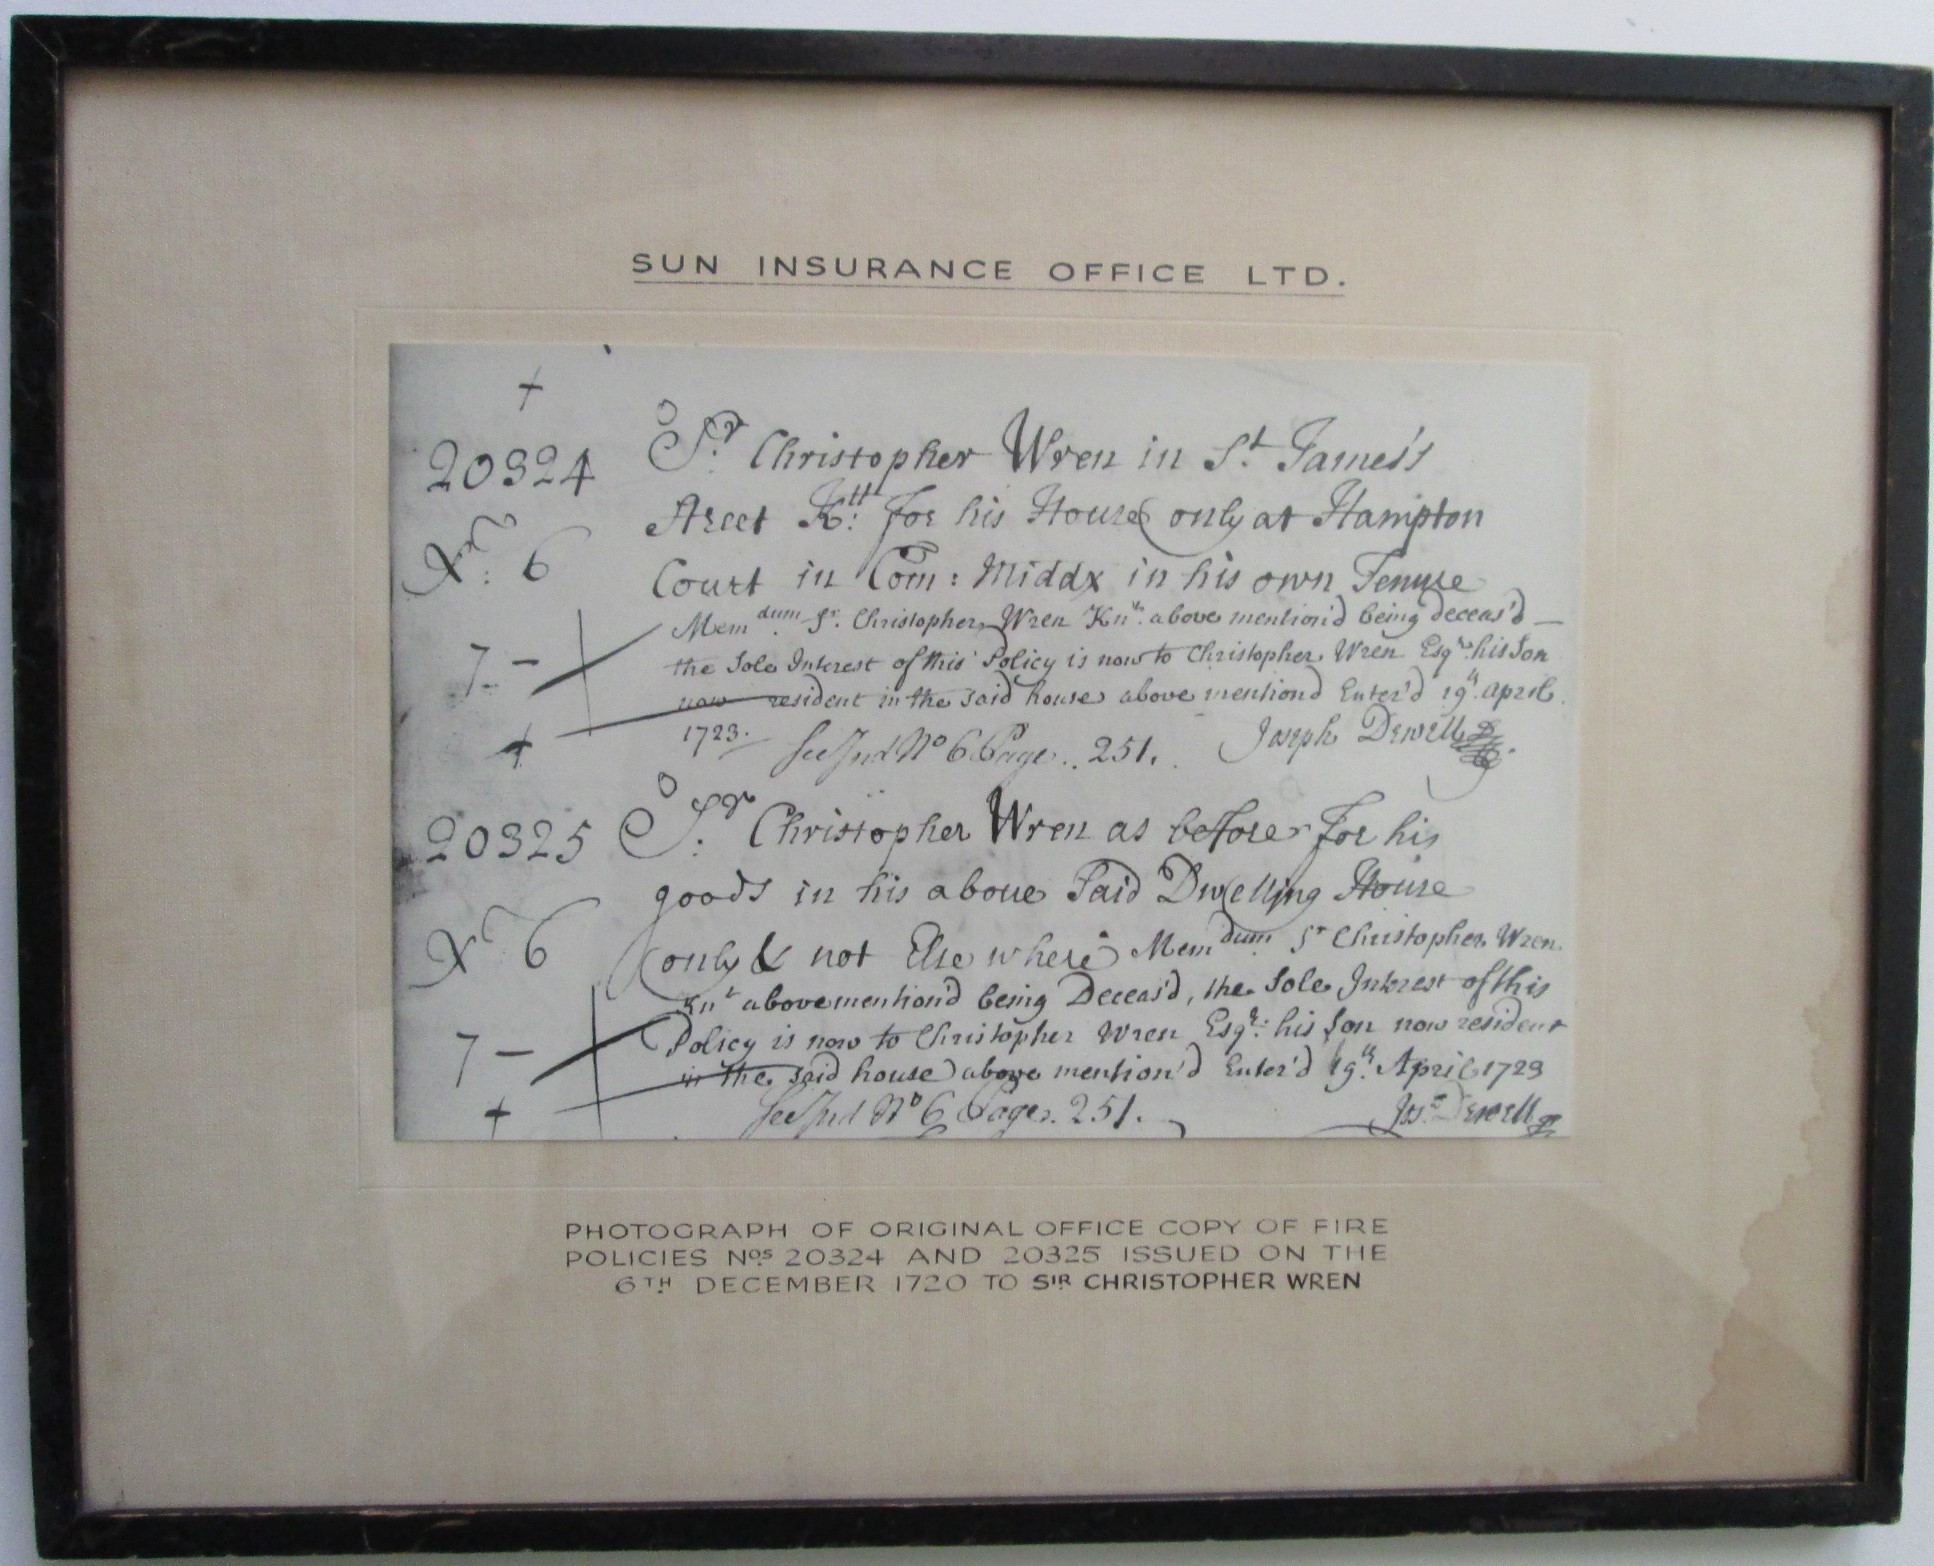 SUN INSURANCE OFFICE LTD.
+
20324 Sr. Christopher Wren in St. James's
Street Kt: for his House only at Hampton
Xr: 6 Court in Com: Middx in his own Tenure
Memdum. Sr. Christopher Wren Knt. above mention'd being deceas'd —
7 – the Sole Interest of this Policy is now to Christopher Wren Esqr. his Son
now resident in the said house above mention'd Enter'd 19th. April
1723. See Ind No 6 Page.. 251. Joseph Dewell
+
20325 Sr. Christopher Wren as before for his
goods in his above Said Dwelling House
Xr 6 only & not Else where Memdum. Sr Christopher Wren
Knt abovemention'd being Deceas'd, the Sole Interest of this
7 – Policy is now to Christopher Wren Esqr: his Son now resident
in the said house above mention'd Enter'd 19th. April 1723
+ See Ind No 6 Page. 251. Jos: Dewell
PHOTOGRAPH OF ORIGINAL OFFICE COPY OF FIRE
POLICIES Nos. 20324 AND 20325 ISSUED ON THE
6TH. DECEMBER 1720 TO SIR CHRISTOPHER WREN